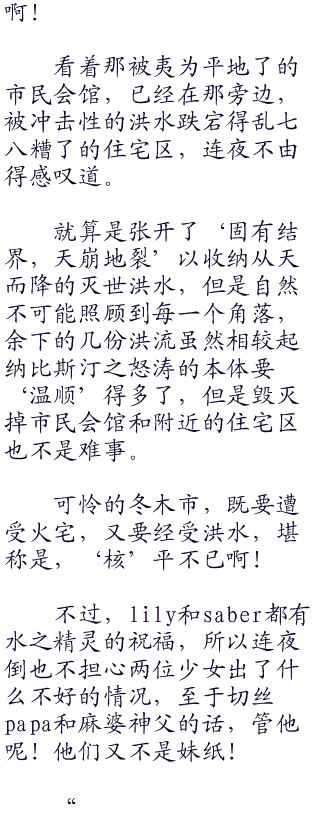 啊！
看着那被夷为平地了的
市民会馆，已经在那旁边，
被冲击性的洪水跌宕得乱七
八糟了的住宅区，连夜不由
得感叹道。
就算是张开了‘固有结
界，天崩地裂’以收纳从天
而降的灭世洪水，但是自然
不可能照顾到每一个角落，
余下的几份洪流虽然相较起
纳比斯汀之怒涛的本体要
‘温顺’得多了，但是毁灭
掉市民会馆和附近的住宅区
也不是难事。
可怜的冬木市，既要遭
受火宅，又要经受洪水，堪
称是，‘核’平不已啊！
不过，lily和saber都有
水之精灵的祝福，所以连夜
倒也不担心两位少女出了什
么不好的情况，至于切丝
papa和麻婆神父的话，管他
呢！他们又不是妹纸！
“